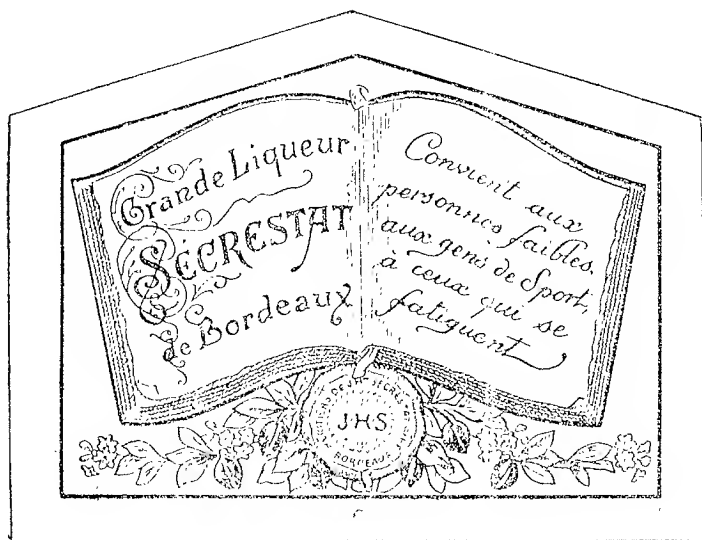 Grande Liqueur
SÉCRESTAT
de Bordeaux
Convient aux
personnes faibles.
aux gens de Sport,
à ceux qui se
fatiguent
J.H.S.
BORDEAUX